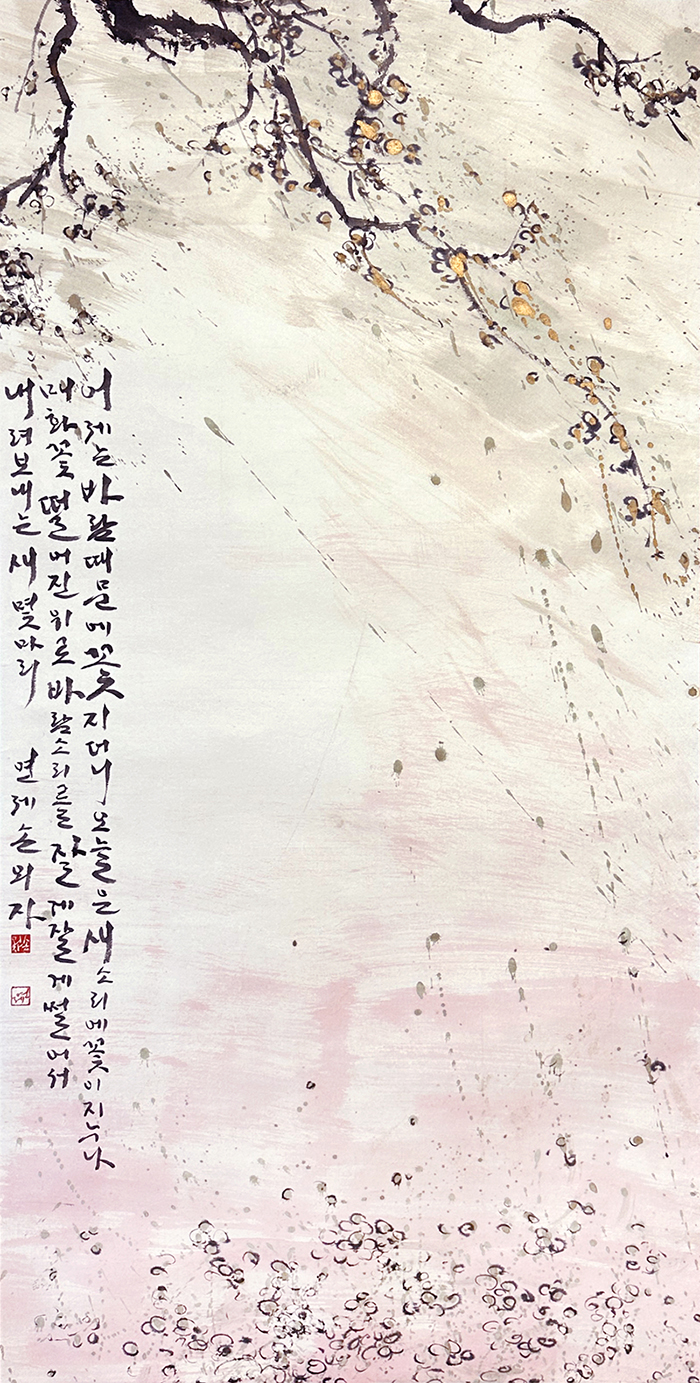 어제는 바람때문에 꽃 지더니 오늘은 새소리에 꽃이 지누나
매화꽃 떨어진 위로 바람소리를 잘게 잘게 썰어서
내려보내는 새 몇마리